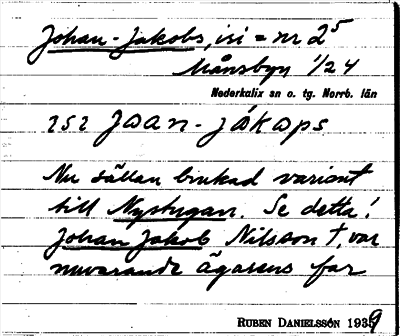 Johan-Jakobs, isi = nr 2⁵
Månsbyn 1/24
Nederkalix sn o. tg. Norrb. län
jåan-jákåps
Nu sällan brukad variant
till Nystugan. Se detta!
Johan Jakob Nilsson †, var
nuvarande ägarens far
RUBEN DANIELSSON 1939